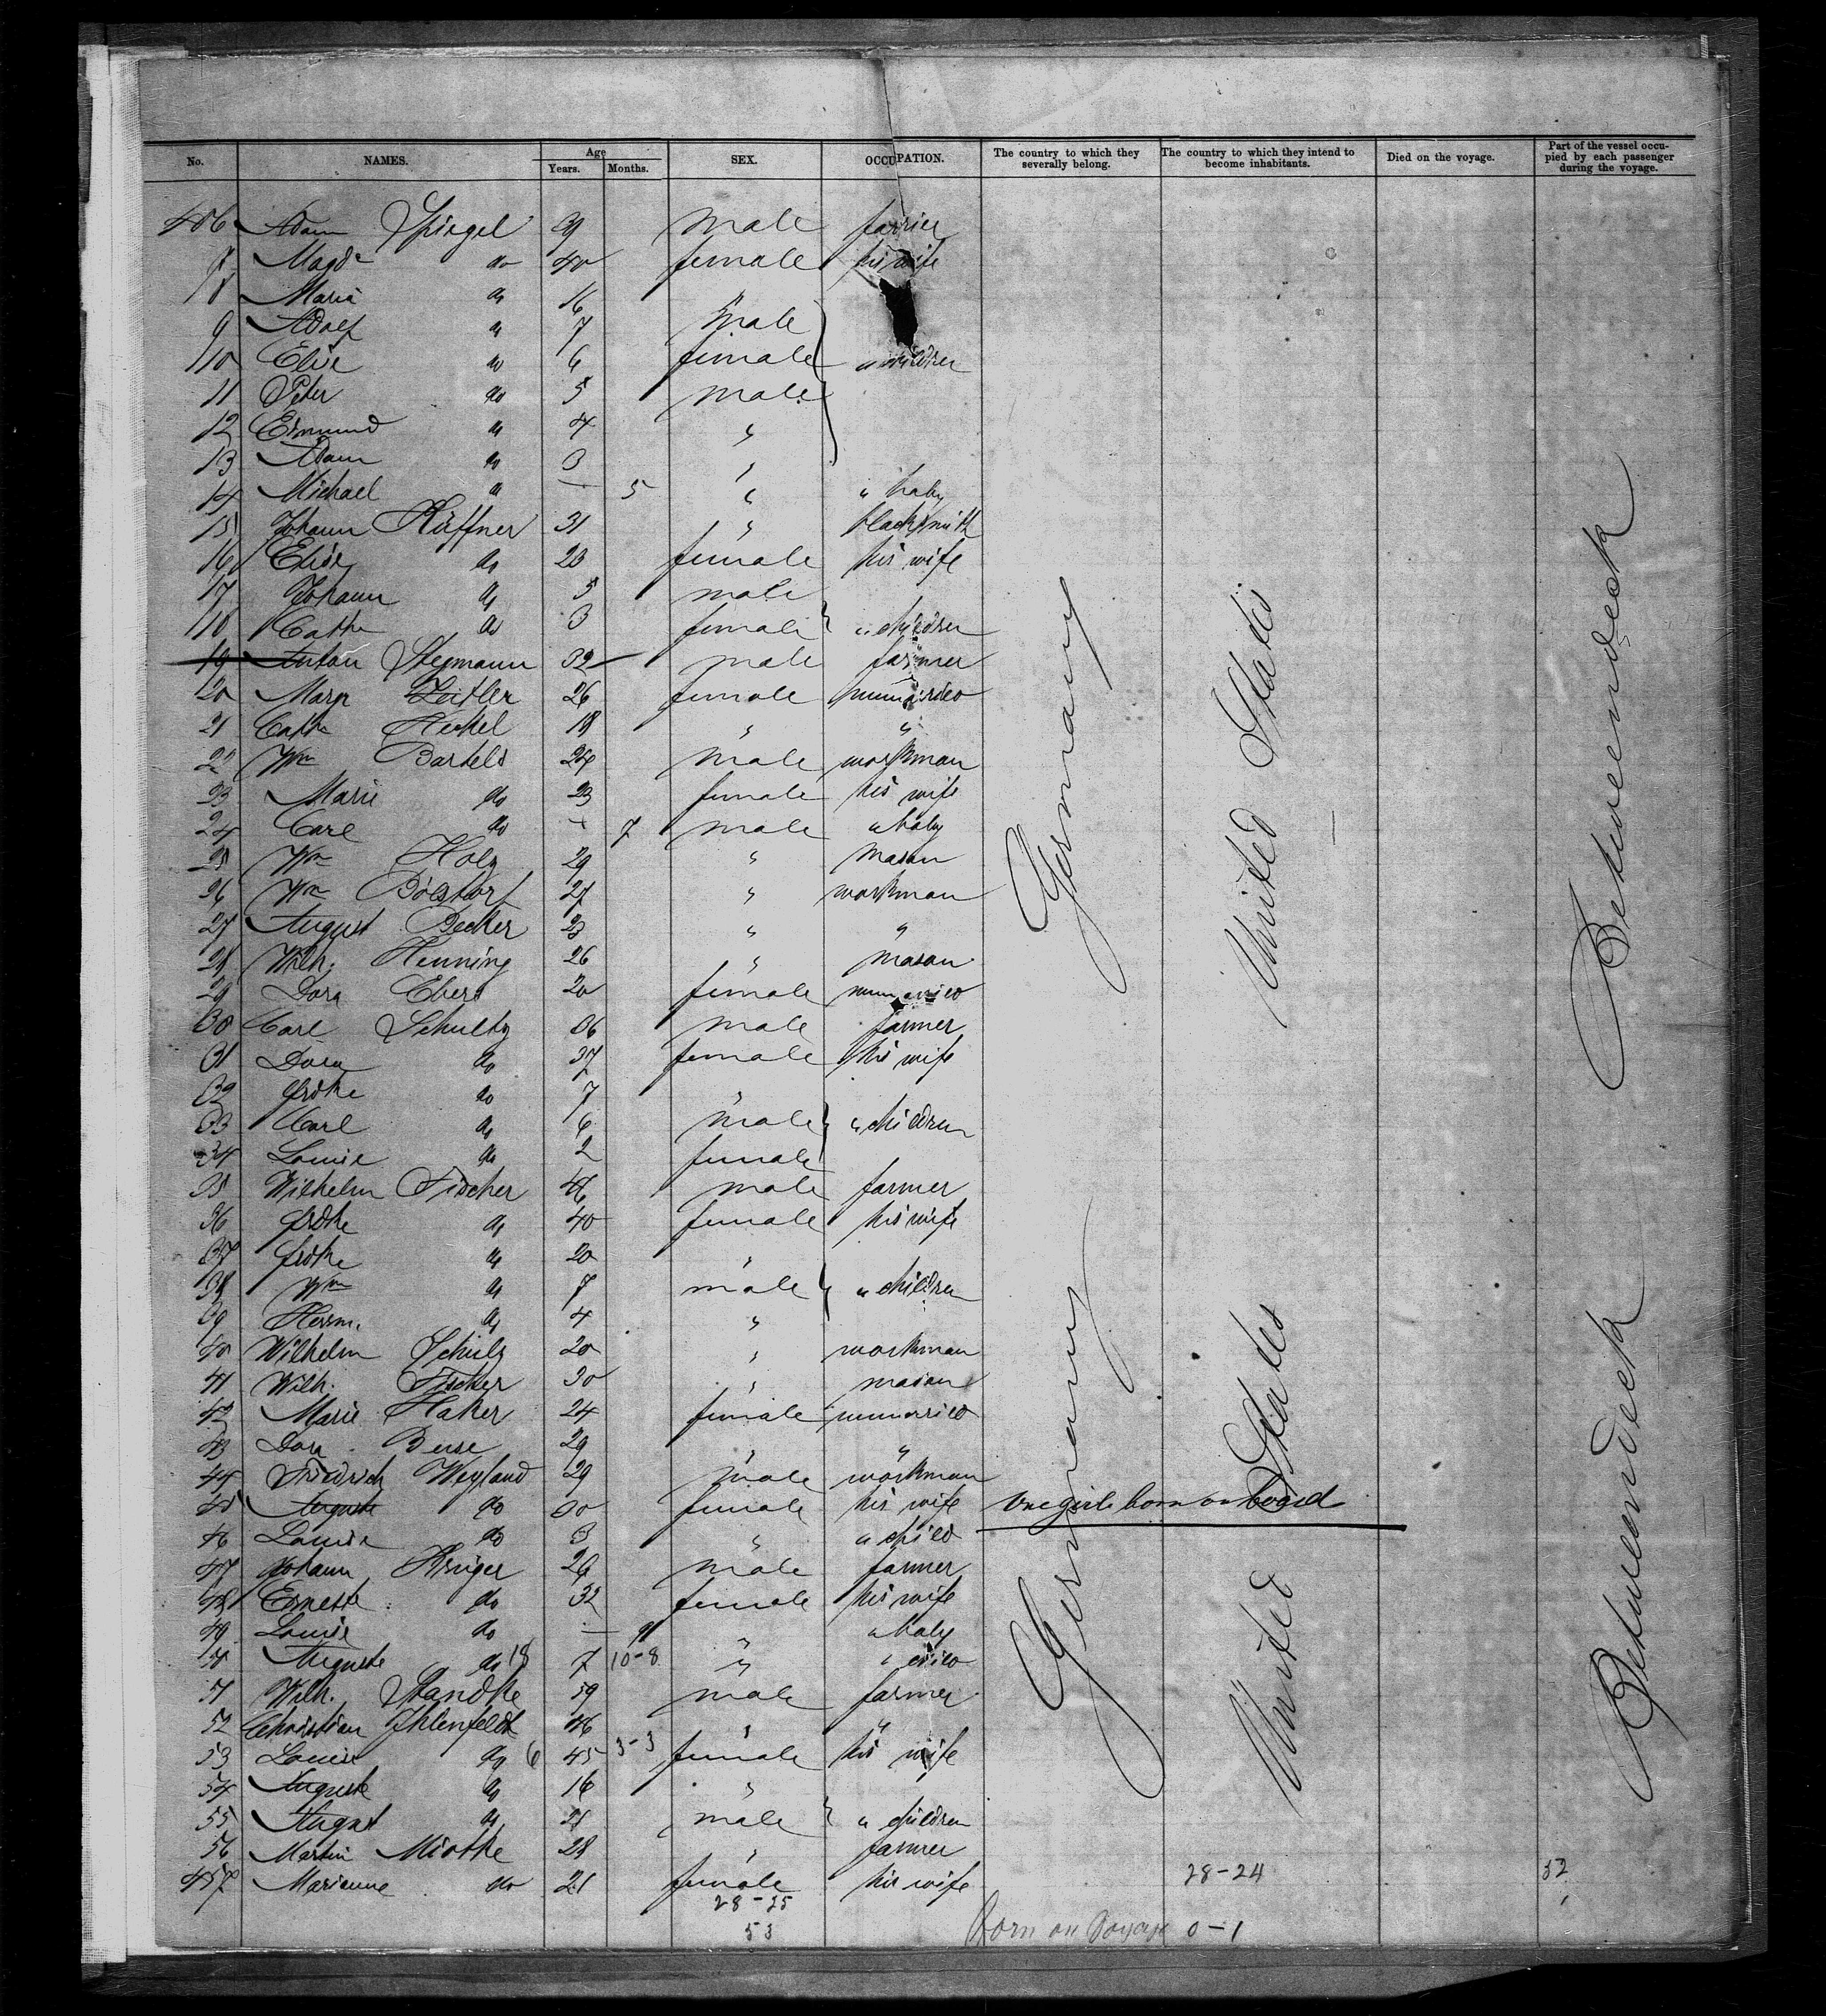 No. NAMES. Age Years. Months. SEX. OCCUPATION. The country to which they severally belong. The country to which they intend to become inhabitants. Died on the voyage. Part of the vessel occupied by each passenger during the voyage.
406 Adam Spiegel 39 male farrier
7 Magd do 40 female his wife
8 Maria do 16 "
9 Adolf do 7 male
10 Elise do 6 female " children
11 Peter do 5 male
12 Edmund do 4 "
13 Adam do 3 "
14 Michael do — 5 " " baby
15 Johann Küffner 31 " blacksmith
16 Elise do 23 female his wife
17 Johann do 5 male
18 Cathr do 3 female " children
19 Anton Stegmann 32 male farmer
20 Marg Zeitler 26 female unmarried
21 Cathr Heckel 18 " "
22 Wm Bartels 24 male workman
23 Marie do 23 female his wife
24 Carl do — 7 male " baby
25 Wm Holz 29 " mason
26 Wm 27 " workman
27 August Becker 23 " "
28 Wilh. Henning 26 " mason
29 Dora Ebers 20 female unmarried
30 Carl Schultz 36 male farmer
31 Dora do 37 female his wife
32 Frdke do 7 "
33 Carl do 6 male " children
34 Louise do 2 female
35 Wilhelm Fischer 46 male farmer
36 Frdke do 40 female his wife
37 Frdke do 20 "
38 Wm do 7 male " children
39 Herm. do 4 "
40 Wilhelm Schulz 20 " workman
41 Wilh. Fischer 30 " mason
42 Marie Haker 24 female unmarried
43 Dora Beese 29 " "
44 Friedrich Weyland 29 male workman
45 Auguste do 30 female his wife one girl born on board
46 Louise do 3 " " child
47 Johann Krüger 26 male farmer
48 Erneste do 32 female his wife
49 Louise do — 11 " baby
50 Auguste do 18 7 10-8 " " child
51 Wilh. Standke 59 male farmer
52 Christian Ihlenfeldt 46 " "
53 Louise do 6 45 3-3 female his wife
54 Auguste do 16 "
55 August do male " children
56 Martin Miotke 28 " farmer
457 Marianne do 21 female his wife
28-25
53
Germany
Germany
United States
United States
Betweendeck
Betweendeck
28-24
52
1
Born on Voyage 0-1